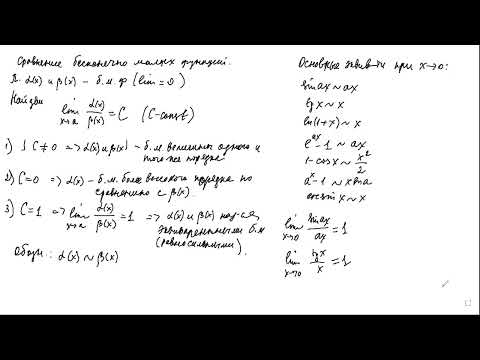 Сравнение бесконечно малых функций.
П. α(x) и β(x) – б.м.ф (lim=0)
Найдём
lim x→a α(x)/β(x) = C (C-const)
1) C≠0 => α(x) и β(x) – б.м. величины одного и
того же порядка
2) C=0 => α(x) - б.м. более высокого порядка по
сравнению с β(x).
3) C=1 => lim x→a α(x)/β(x) = 1 => α(x) и β(x) наз-ся
эквивалентными б.м
(равносильными).
Обозн.: α(x) ~ β(x)
Основные эквив-ти при x→0:
sin ax ~ ax
tg x ~ x
ln(1+x) ~ x
e^ax -1 ~ ax
1-cos x ~ x²/2
a^x -1 ~ x ln a
arcsin x ~ x
lim x→0 sin ax/ax = 1
lim x→0 tg x/x = 1